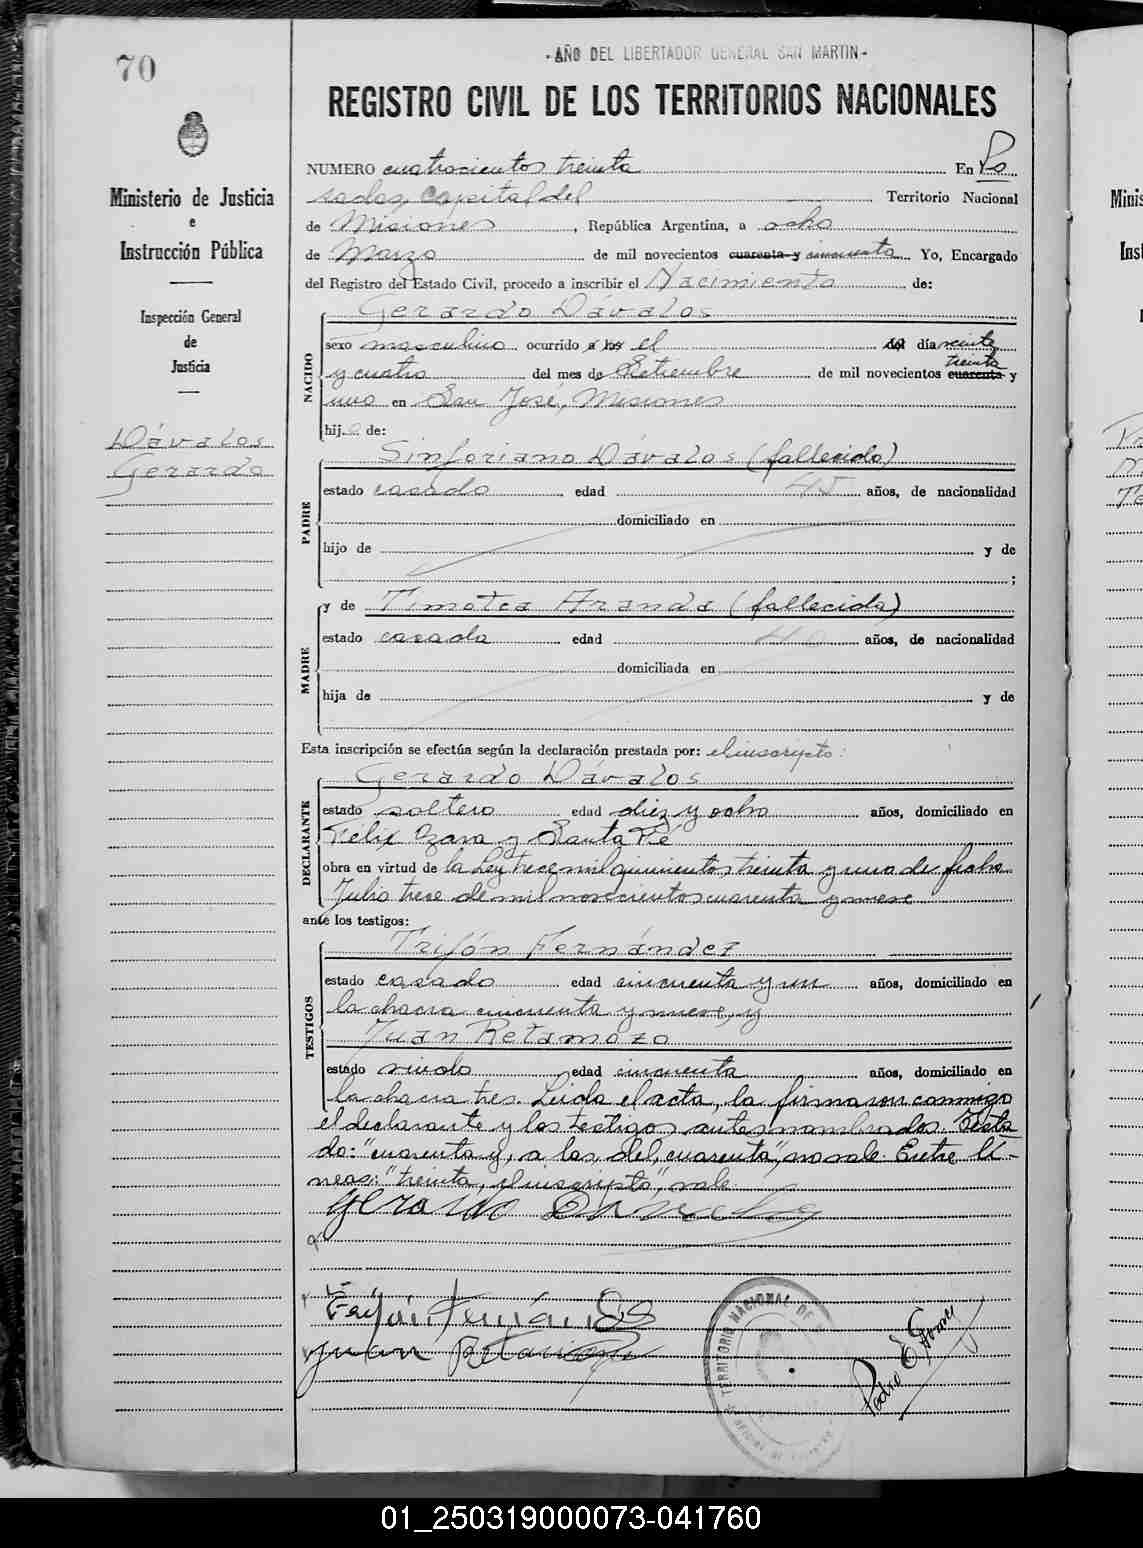 70
- AÑO DEL LIBERTADOR GENERAL SAN MARTIN -
REGISTRO CIVIL DE LOS TERRITORIOS NACIONALES
Ministerio de Justicia
e
Instrucción Pública
Inspección General
de
Justicia
Dávalos
Gerardo
NUMERO cuatrocientos treinta En Po
sadas, Capital del Territorio Nacional
de Misiones, República Argentina, a ocho
de Marzo de mil novecientos cuarenta y cincuenta Yo, Encargado
del Registro del Estado Civil, procedo a inscribir el Nacimiento de:
NACIDO
Gerardo Dávalos
sexo masculino ocurrido a las el del día veinte
treinta
y cuatro del mes de Setiembre de mil novecientos cuarenta y
uno en San José, Misiones
hijo de:
PADRE
Sinforiano Dávalos (fallecido)
estado casado, edad 45 años, de nacionalidad
domiciliado en
hijo de y de
;
MADRE
y de Timotea Aranda (fallecida)
estado casada edad 40 años, de nacionalidad
domiciliada en
hija de y de
Esta inscripción se efectúa según la declaración prestada por: el inscripto:
DECLARANTE
Gerardo Dávalos
estado soltero edad diez y ocho años, domiciliado en
Félix Azara y Santa Fé
obra en virtud de la Ley trece mil quinientos treinta y uno de fecha
Julio trece de mil novecientos cuarenta y nueve
ante los testigos:
TESTIGOS
Trifón Fernández
estado casado edad cincuenta y un años, domiciliado en
la chacra cincuenta y nueve, y
Juan Retamozo
estado viudo edad cincuenta años, domiciliado en
la chacra tres. Leida el acta, la firmaron conmigo
el declarante y los testigos antes nombrados. Testa
do: "cuarenta y, a las, del, cuarenta", no vale. Entre lí-
neas: "treinta, el inscripto", vale.
Gerardo Dávalos
Trifón Fernández
Juan Retamozo
TERRITORIO NACIONAL DE
Pedro E Gomez
01_250319000073-041760